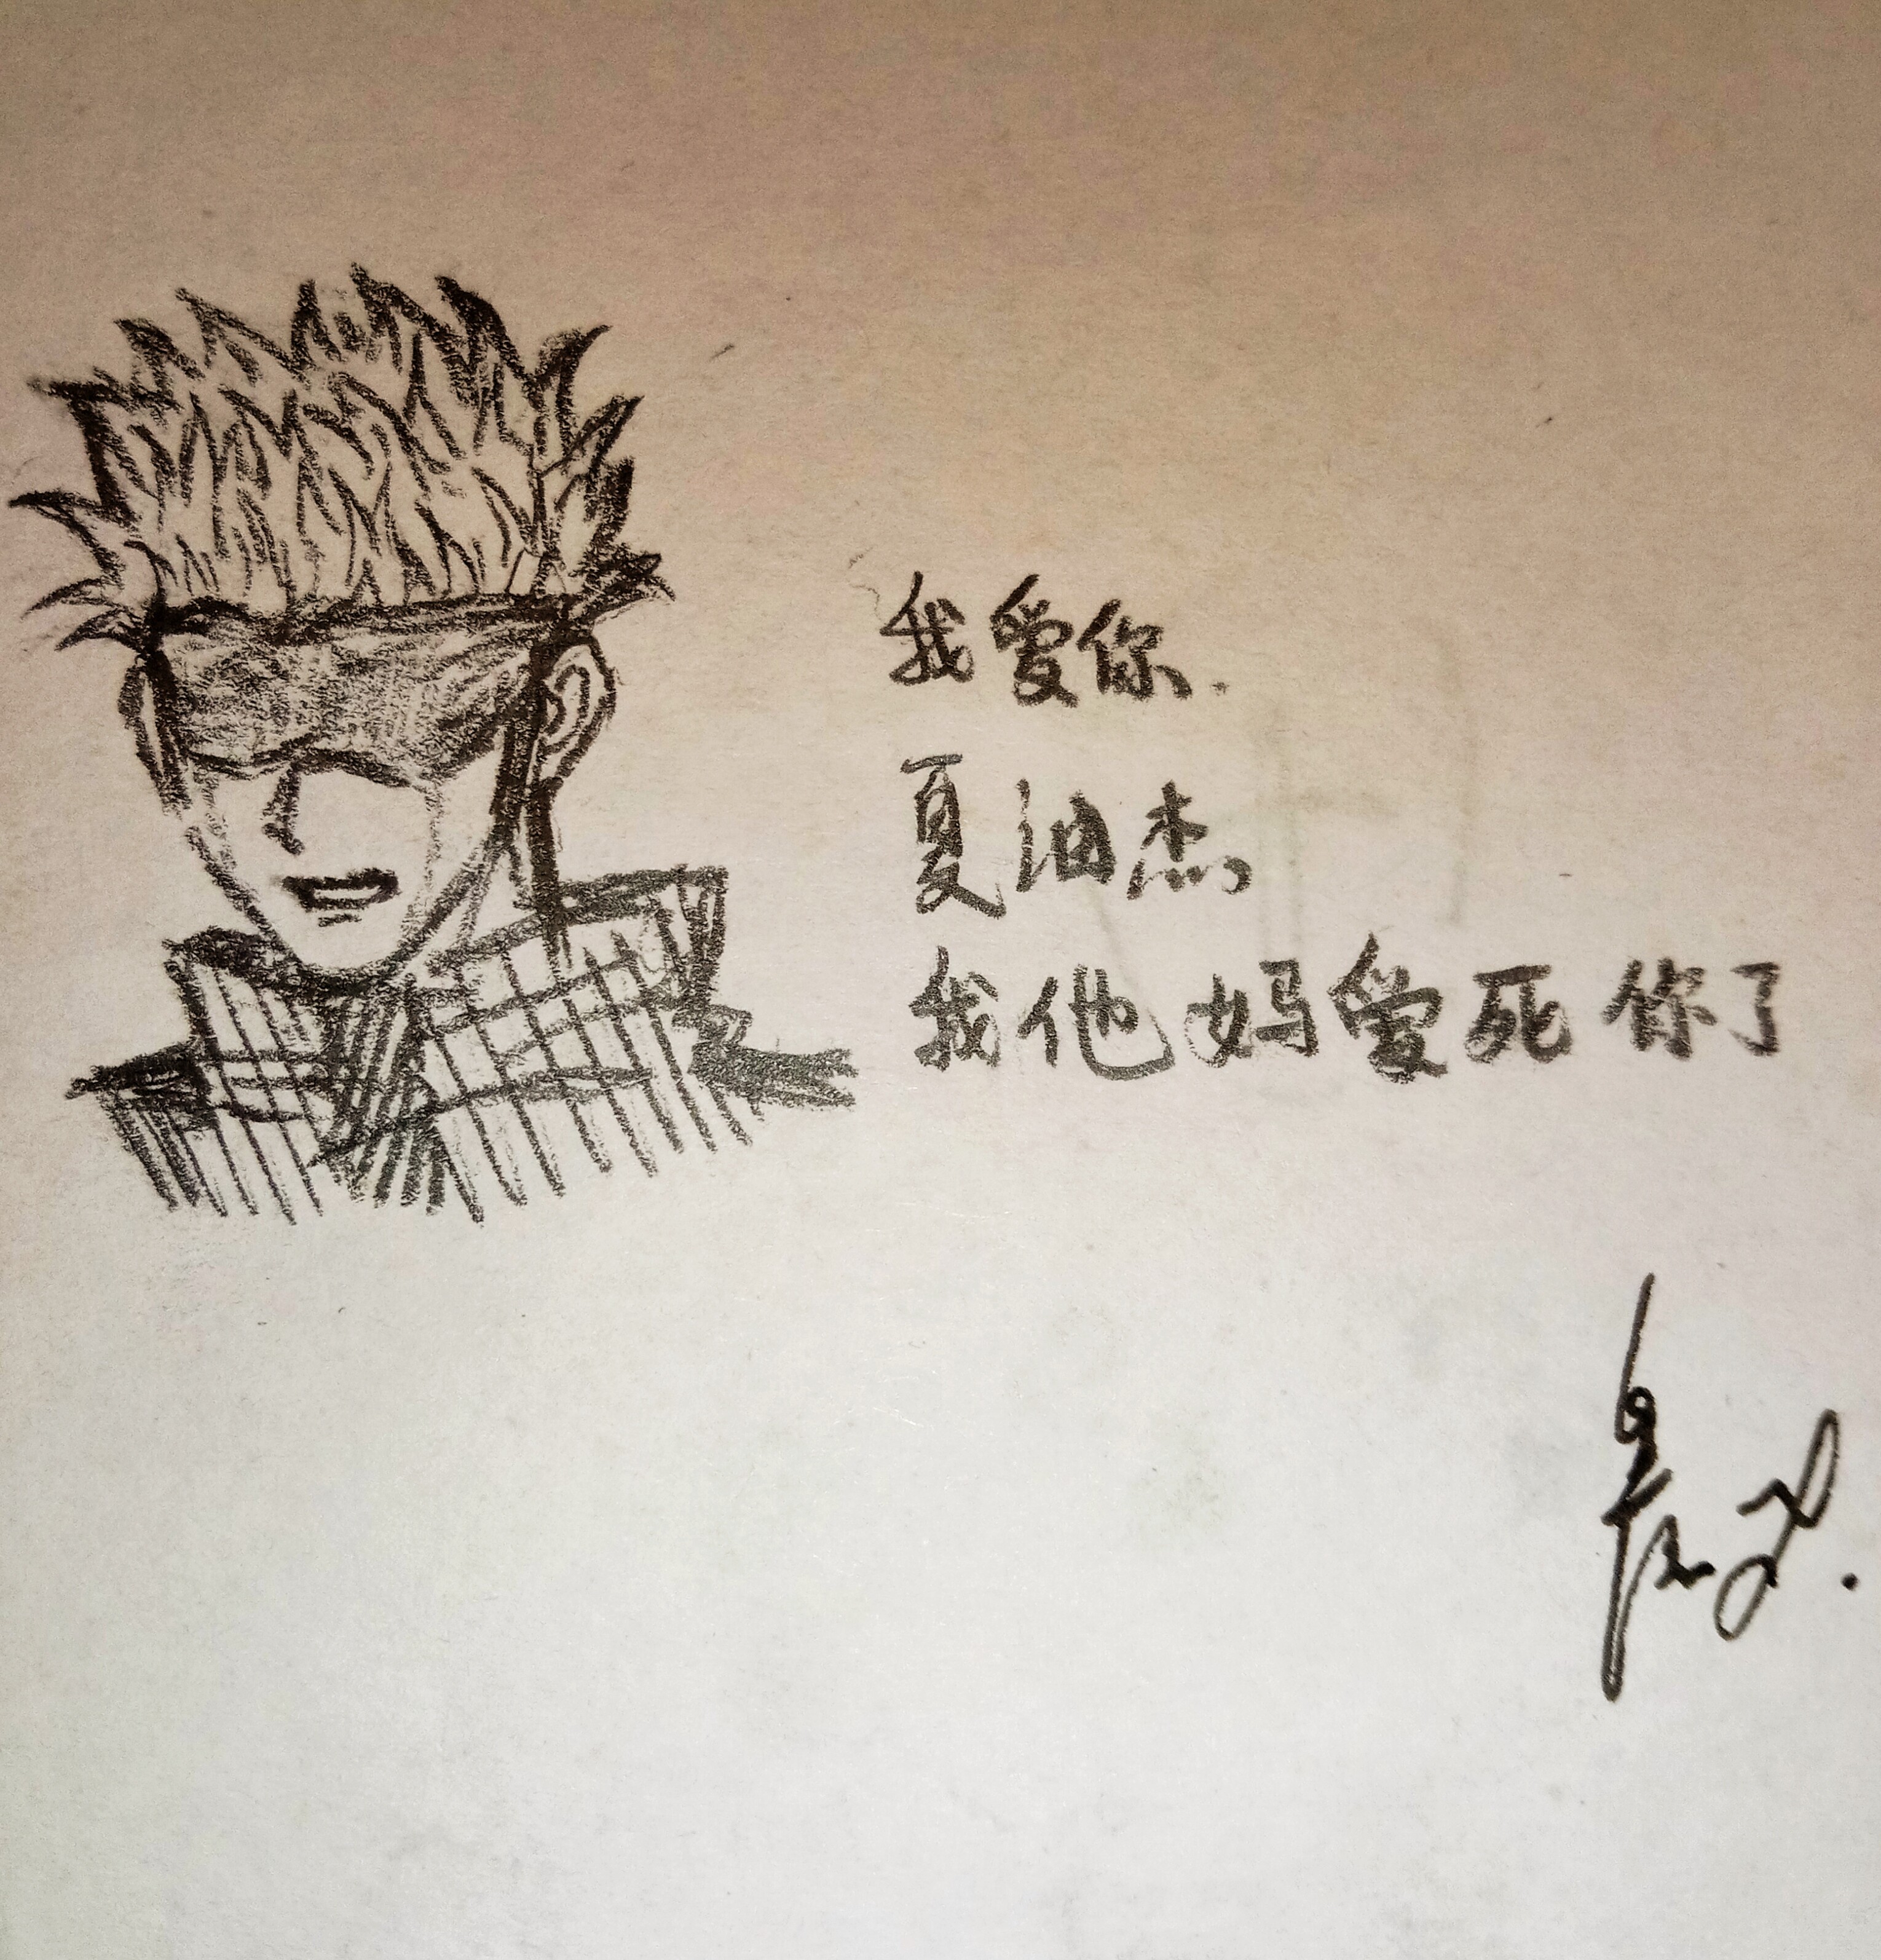 我爱你.
夏油杰
我他妈爱死你了